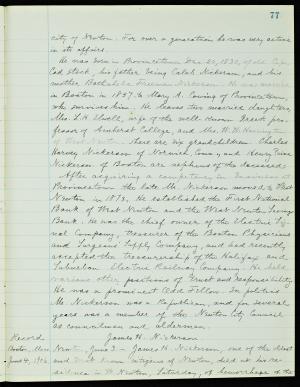 77
city of Newton. For over a generation he was very active
in its affairs.
He was born in Provincetown Dec. 20, 1830, of old Cape
Cod stock, his father being Caleb Nickerson, and his
mother Freeman Nickerson. He was married
in Boston in 1857 to Mary A. Cowing of Provincetown,
who survives him. He leaves two married daughters,
Mrs. L. H. Elwell, wife of the well-known Greek pro-
fessor of Amherst College, and Mrs. H. H.
of West Newton. There are six grandchildren. Charles
Harvey Nickerson of Norwich, Conn., and Henry
Nickerson of Boston are nephews of the deceased.
After acquiring a competency in business at
Provincetown the late Mr. Nickerson moved to West
Newton in 1873. He established the First National
Bank of West Newton and the West Newton Savings
Bank. He was the chief owner of the Electric Sig-
nal Company, treasurer of the Boston Physicians
and Surgeons' Supply Company, and had recently
accepted the treasurership of the Halifax and
Suburban Electric Railway Company. He held
various other positions of trust and responsibility.
He was a prominent Odd Fellow. In politics
Mr. Nickerson was a Republican, and for several
years was a member of the Newton City Council
as councilman and alderman.
Record James H. Nickerson
Boston, Mass. Newton, June 3 – James H. Nickerson, one of the most
June 4, and best known citizens of Newton, died at his re-
sidence in W. Newton, Saturday, of hemorrhage of the